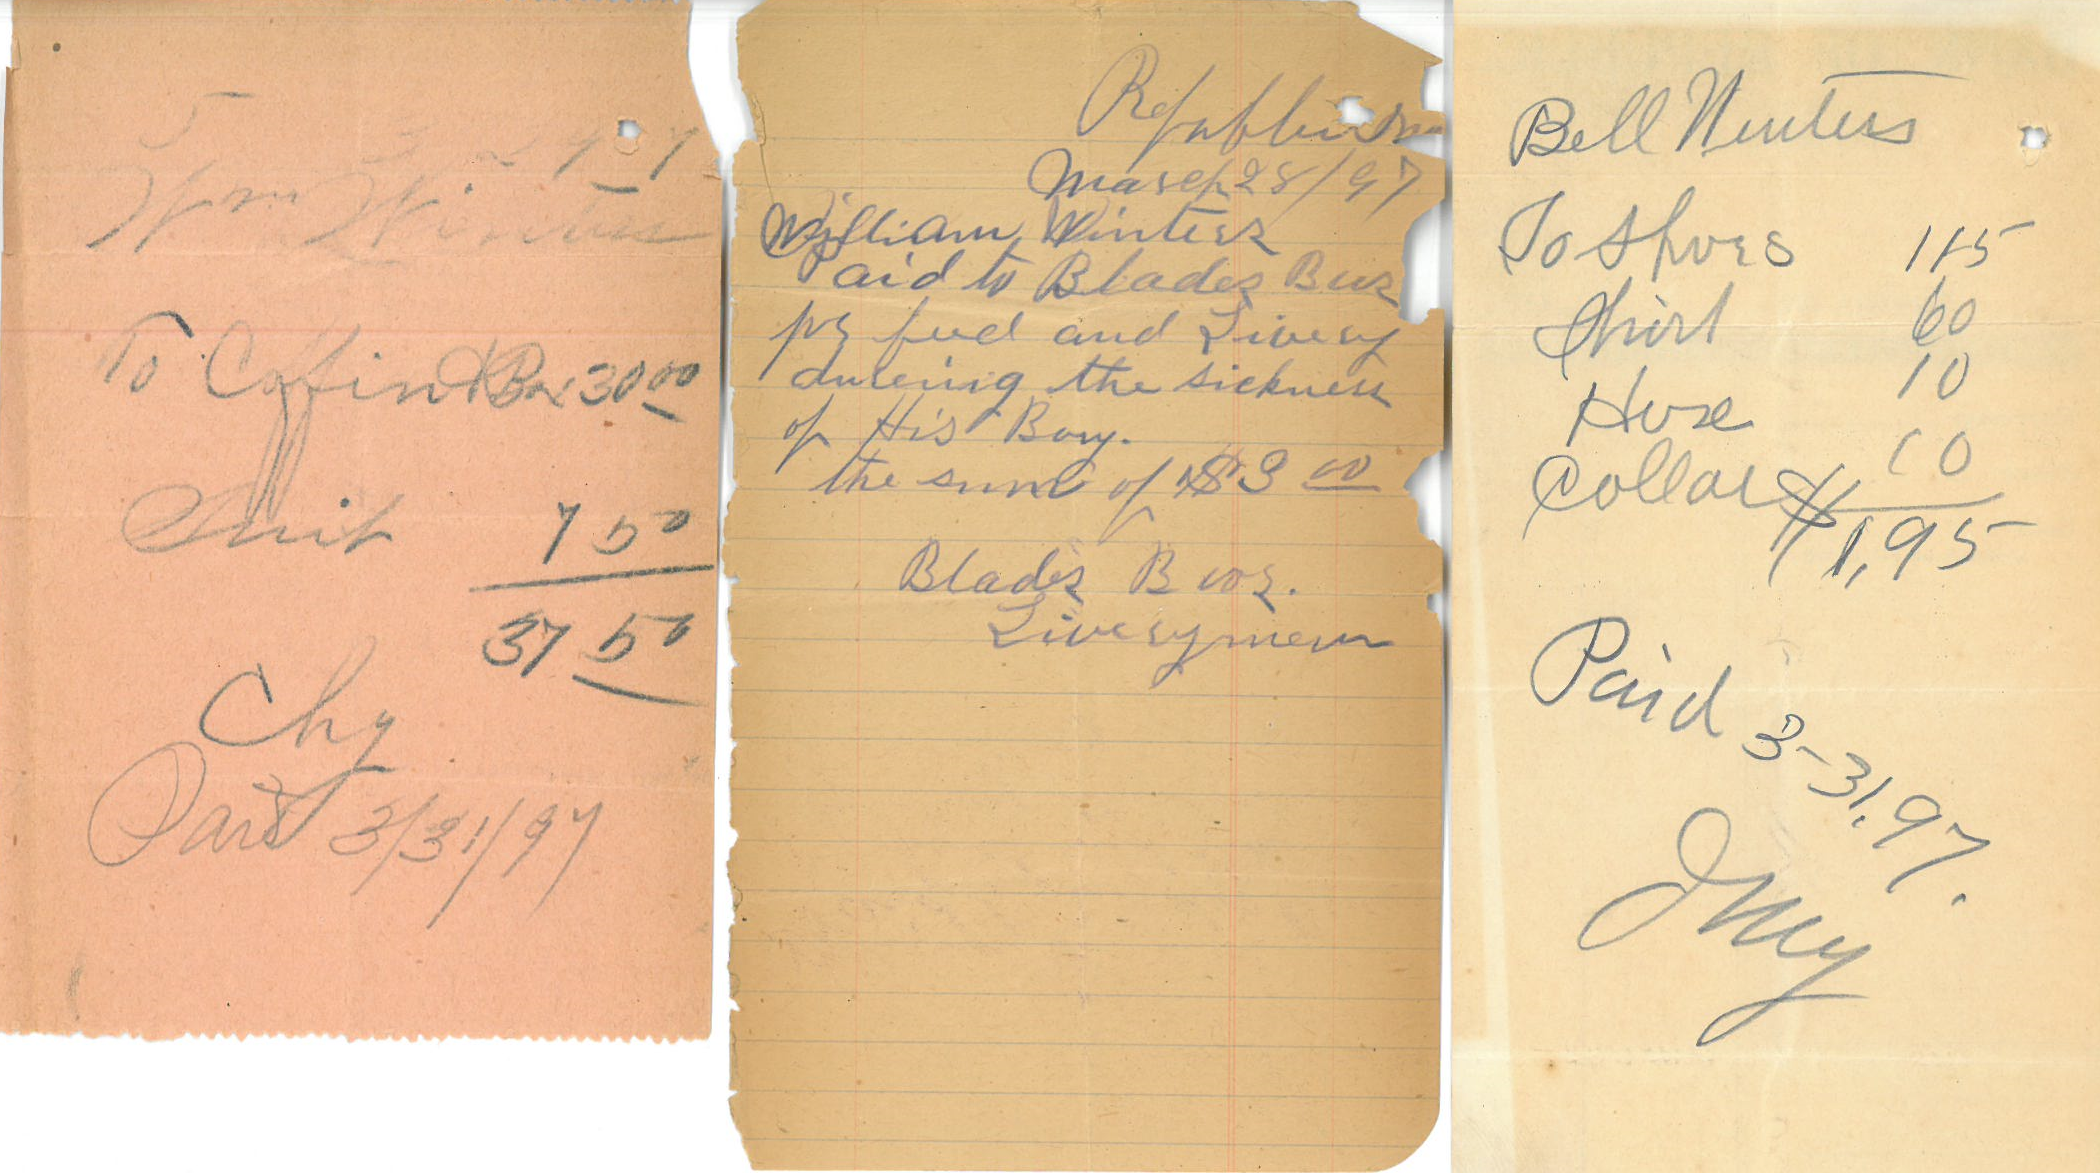 3 29 97
Wm Winters
To Coffin & Box 30 00
Suit 7 50
37 50
Chg
Paid 3/31/97
Republican
March 28/97
William Winters
Paid to Blades Bros
for feed and Livery
dureing the sickness
of His Boy.
the sum of $3 00
Blades Bros.
Liverymen
Bell Winters
To Shoes 115
Shirt 60
Hose 10
Collar 10
$1,95
Paid 3-31,97.